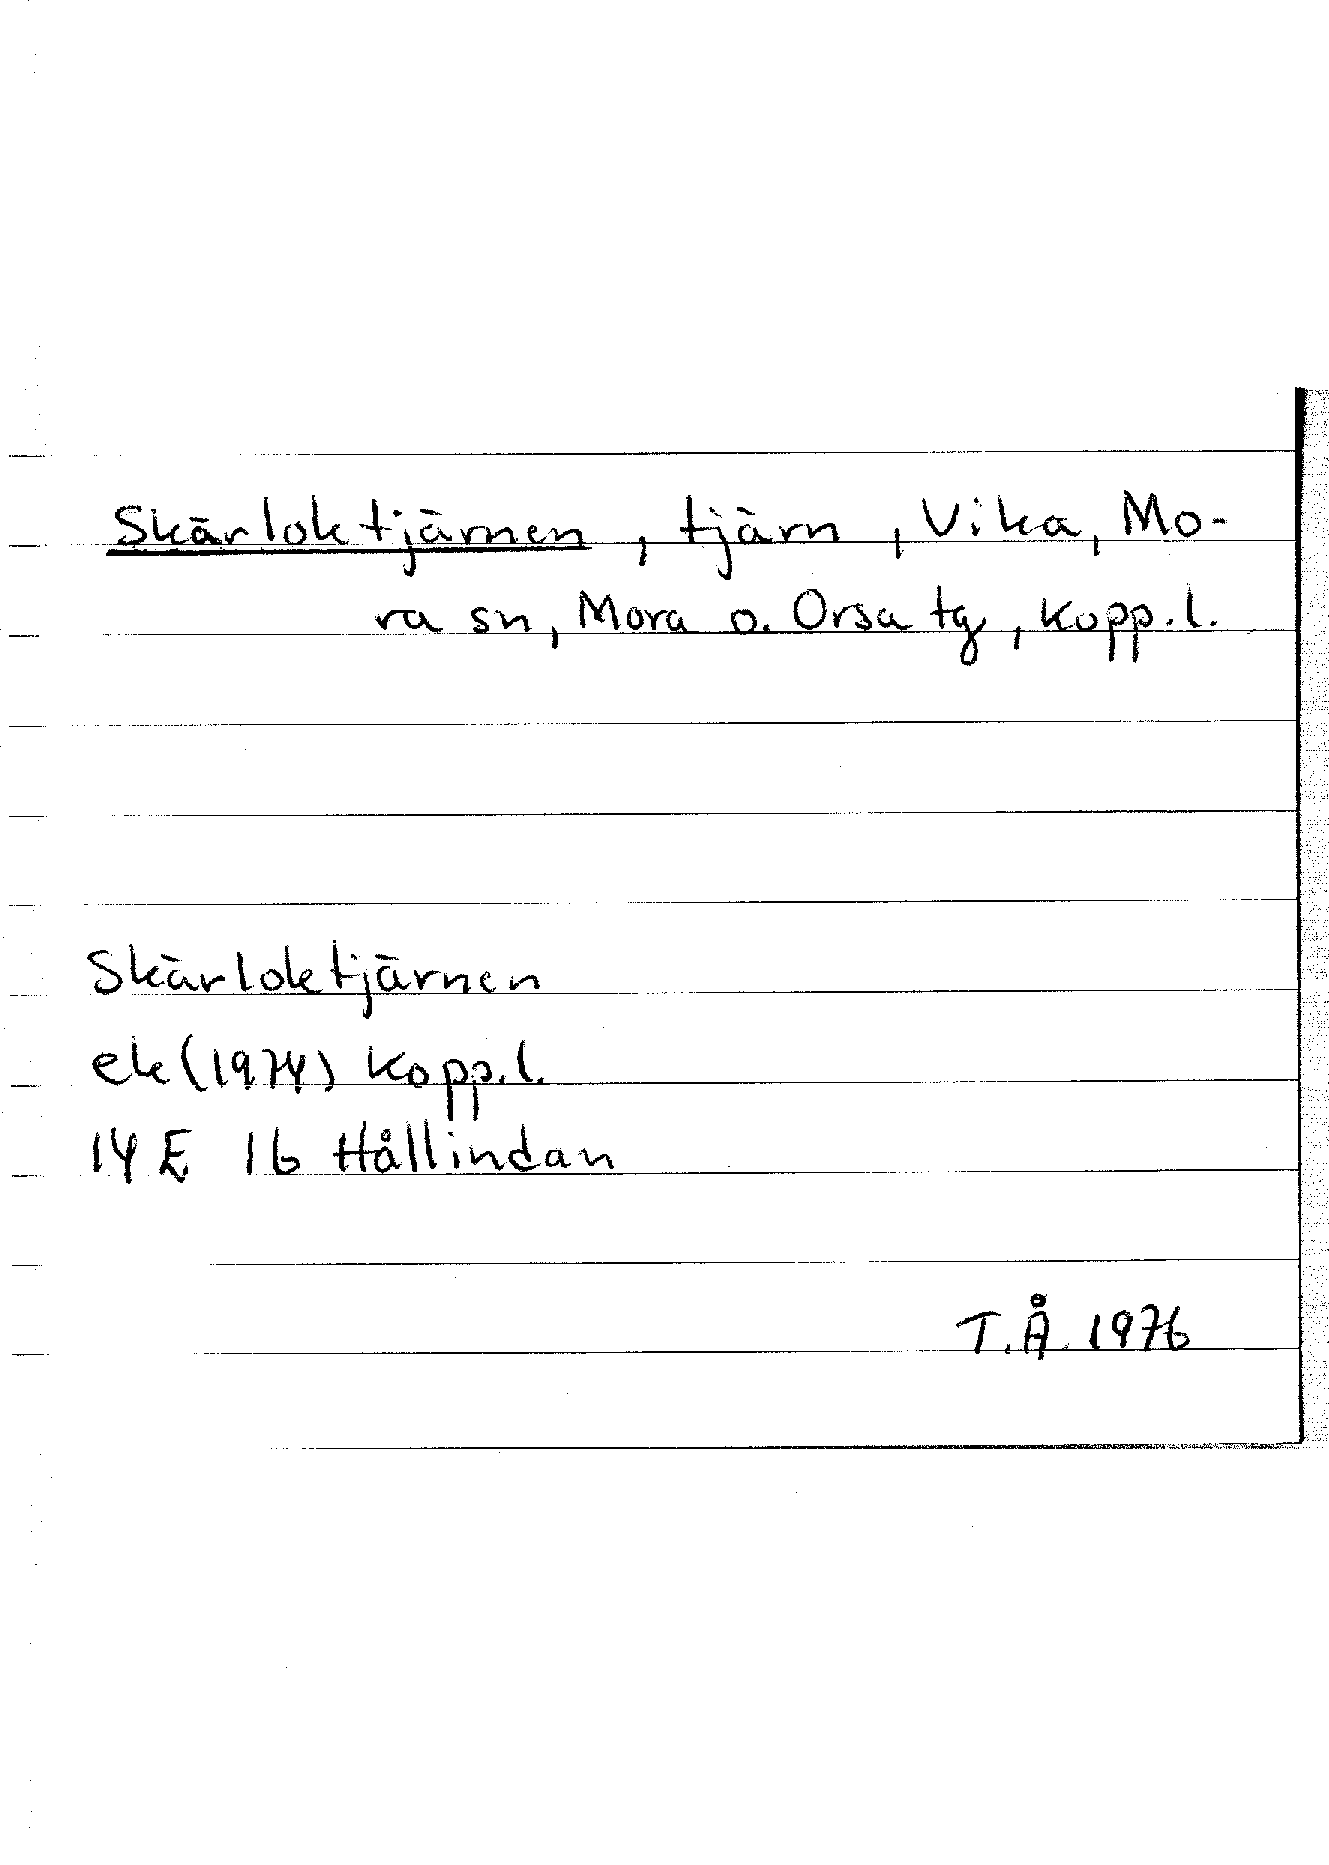 Skärloktjärnen, tjärn, Vika, Mo-
ra sn, Mora o. Orsa tg, Kopp.l.
Skärloktjärnen
ek (1974) Kopp.l.
14 E 1b Hållindan
T.Å. 1976